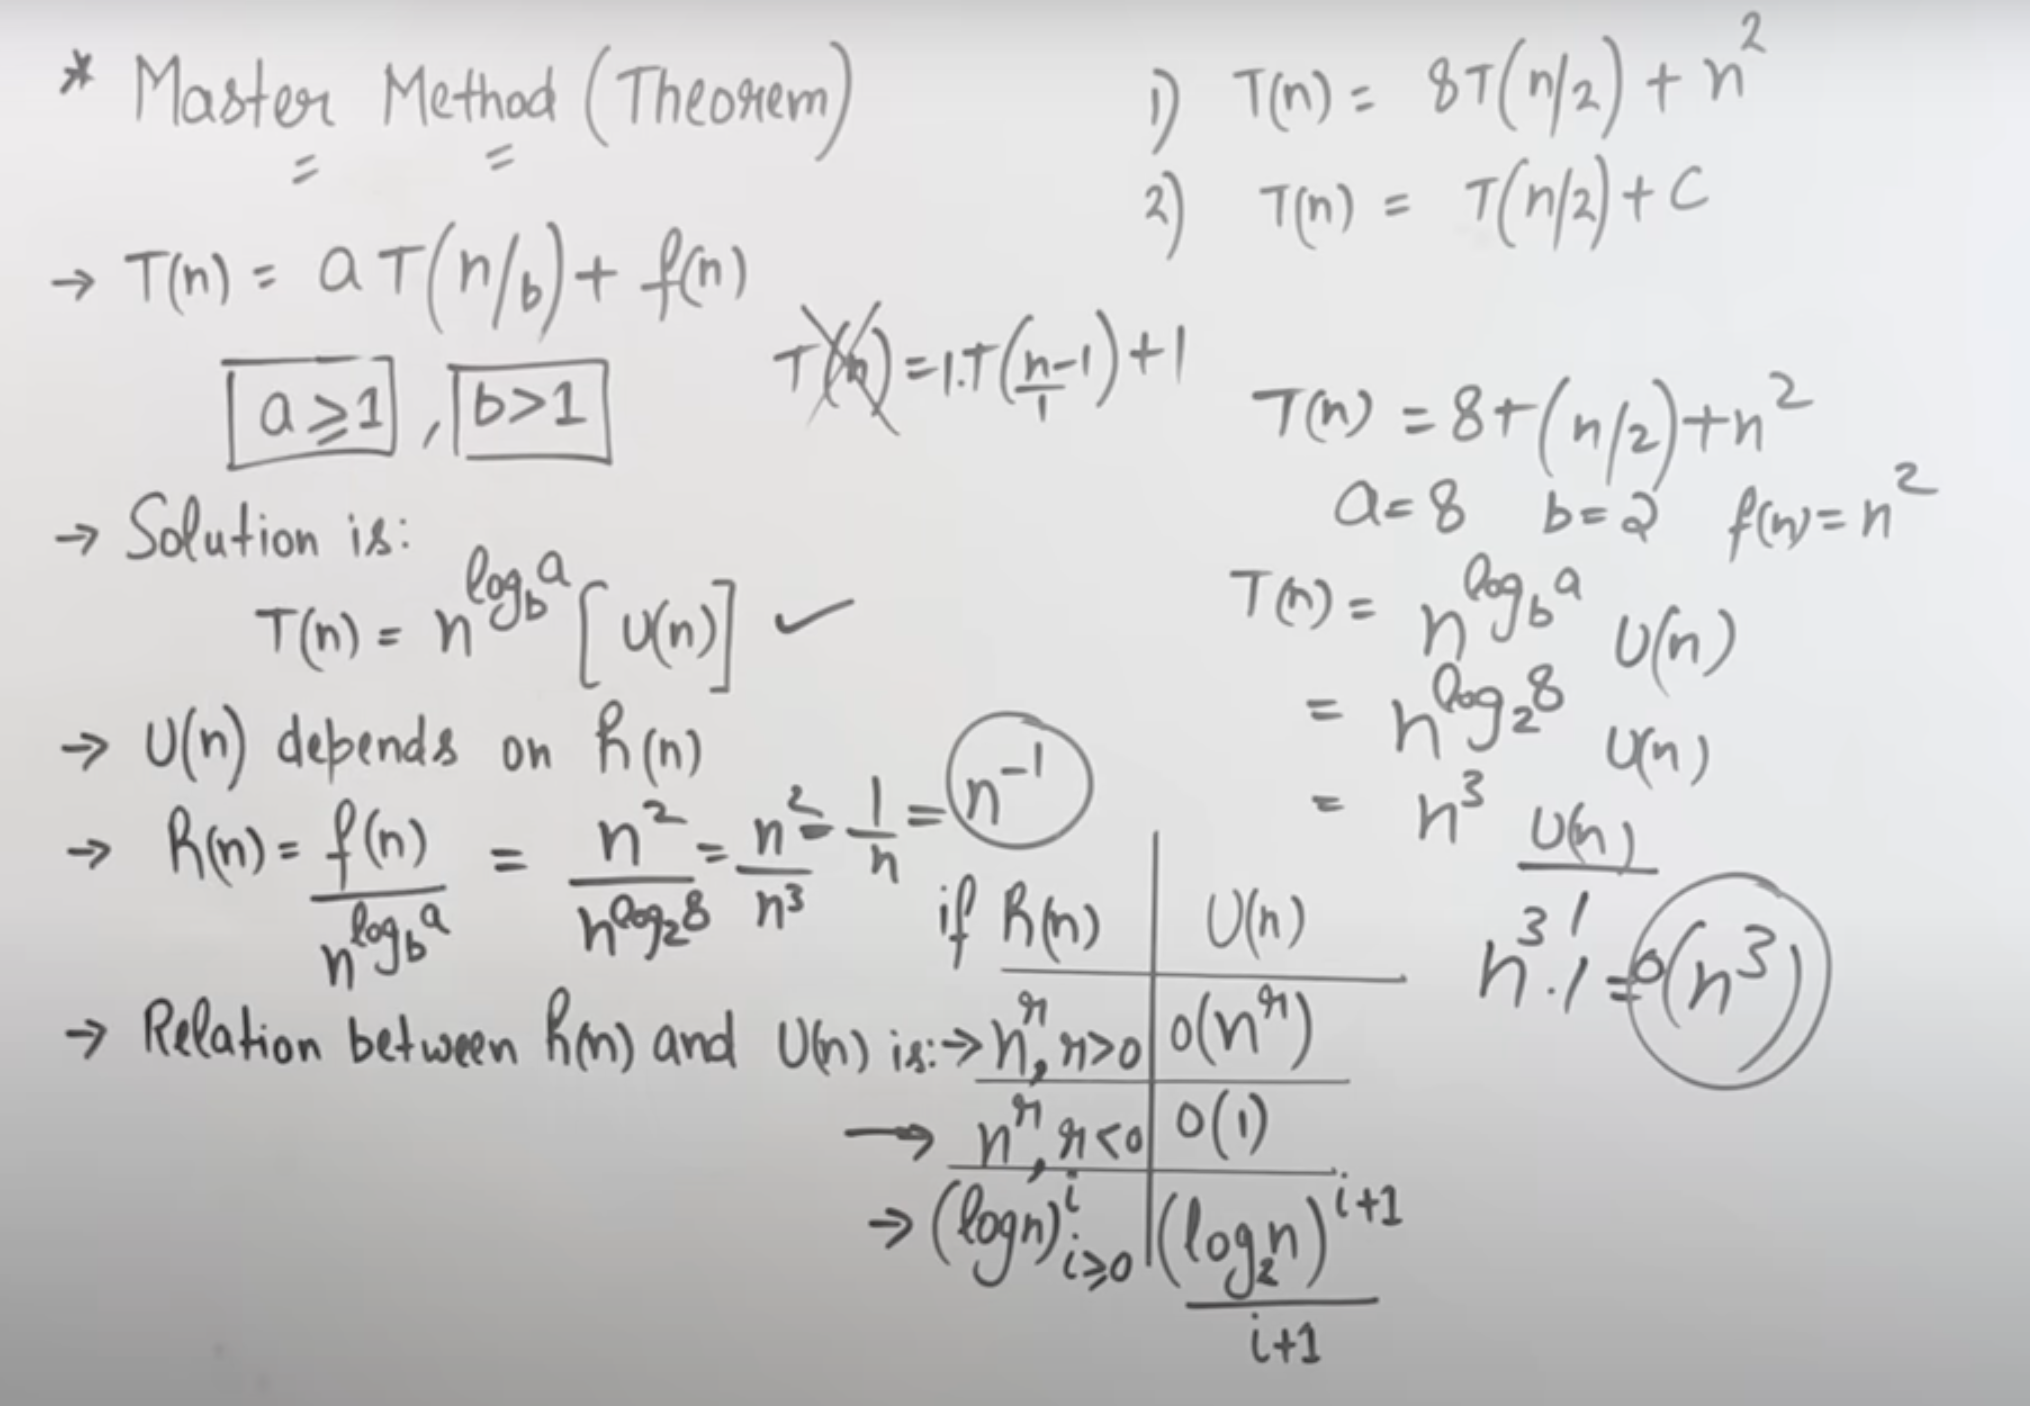 * Master Method (Theorem)
→ T(n) = a T(n/b) + f(n)
a ≥ 1 , b > 1
T(n) = 1.T((n-1)/1) + 1
→ Solution is:
T(n) = n^(log_b a) [U(n)] ✓
→ U(n) depends on h(n)
→ h(n) = f(n) / n^(log_b a) = n^2 / n^(log_2 8) = n^2 / n^3 = 1/n = n^-1
→ Relation between h(n) and U(n) is:
if h(n) | U(n)
→ n^r, r>0 | O(n^r)
→ n^r, r<0 | O(1)
→ (log n)^i i≥0 | (log_2 n)^(i+1) / i+1
1) T(n) = 8T(n/2) + n^2
2) T(n) = T(n/2) + C
T(n) = 8T(n/2) + n^2
a = 8 b = 2 f(n) = n^2
T(n) = n^(log_b a) U(n)
= n^(log_2 8) U(n)
= n^3 U(n)
n^3 . 1 = O(n^3)